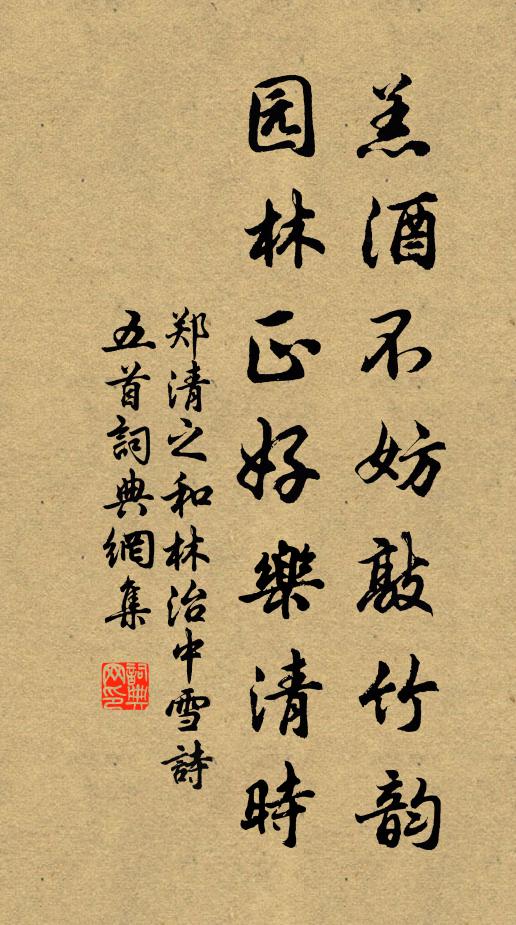 羔酒不妨敲竹韵
园林正好樂清時
郑清之和林治中雪詩
五首詞典網集
詞典
网印